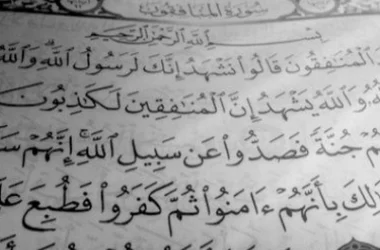 سُورَةُ المُنَافِقُون
بِسْمِ ٱللَّهِ ٱلرَّحْمَٰنِ ٱلرَّحِيمِ
ٱلْمُنَٰفِقُونَ قَالُوا۟ نَشْهَدُ إِنَّكَ لَرَسُولُ ٱللَّهِ وَٱللَّهُ
وَٱللَّهُ يَشْهَدُ إِنَّ ٱلْمُنَٰفِقِينَ لَكَٰذِبُونَ
جُنَّةً فَصَدُّوا۟ عَن سَبِيلِ ٱللَّهِ ۚ إِنَّهُمْ سَ
لِكَ بِأَنَّهُمْ ءَامَنُوا۟ ثُمَّ كَفَرُوا۟ فَطُبِعَ عَلَ